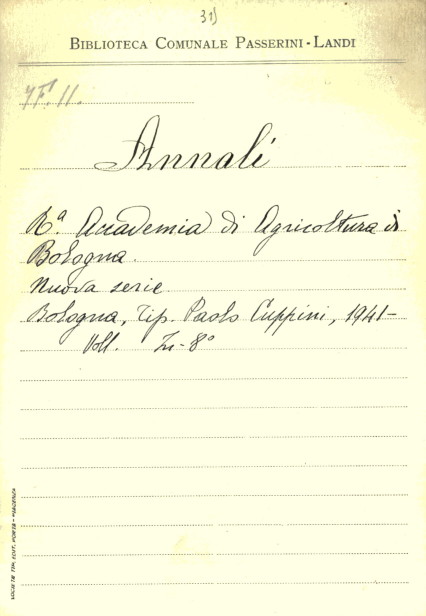 31)
BIBLIOTECA COMUNALE PASSERINI-LANDI
7F.11.
Annali
R.ª Accademia di Agricoltura di
Bologna.
Nuova serie.
Bologna, Tip. Paolo Cuppini, 1941-
Voll. In-8°
SOCIETÀ TIP. EDIT. PORTA - PIACENZA